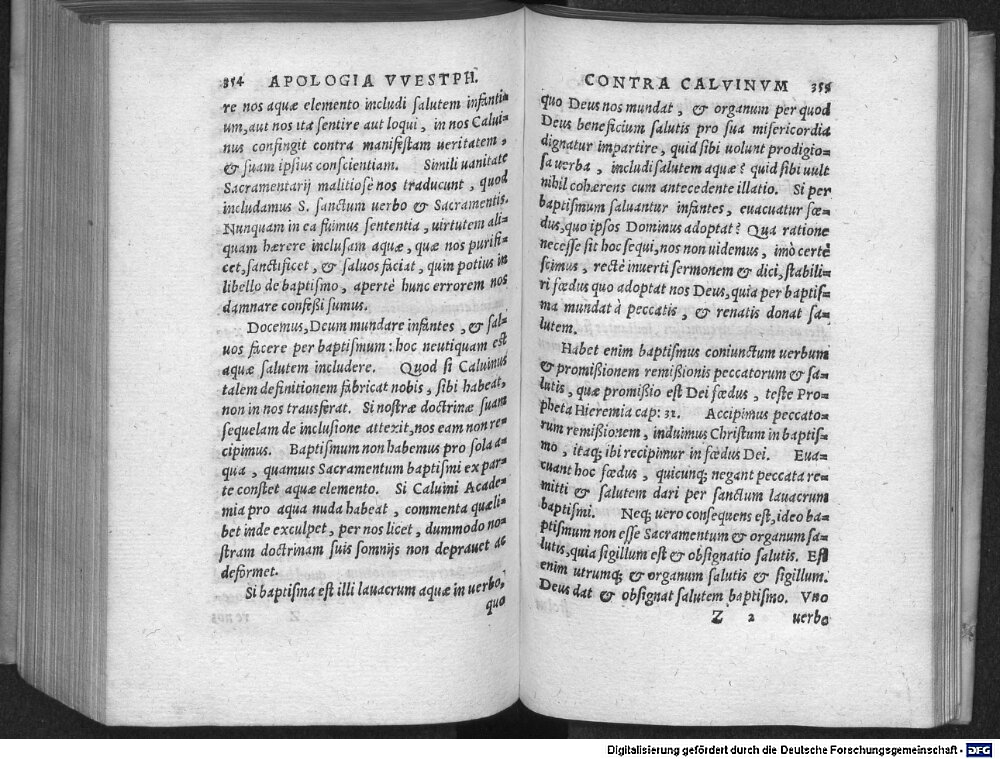 354 APOLOGIA VVESTPH.
re nos aquæ elemento includi salutem infanti-
um, aut nos ita sentire aut loqui, in nos Calui-
nus confingit contra manifestam ueritatem,
& suam ipsius conscientiam. Simili uanitate
Sacramentarij malitiosè nos traducunt, quod
includamus S. sanctum uerbo & Sacramentis.
Nunquam in ea fuimus sententia, uirtutem ali-
quam hærere inclusam aquæ, quæ nos purifi-
cet, sanctificet, & saluos faciat, quin potius in
libello de baptismo, apertè hunc errorem nos
damnare confessi sumus.
Docemus, Deum mundare infantes, & sal-
uos facere per baptismum: hoc neutiquam est
aquæ salutem includere. Quod si Caluinus
talem definitionem fabricat nobis, sibi habeat,
non in nos transferat. Si nostræ doctrinæ suam
sequelam de inclusione attexit, nos eam non re-
cipimus. Baptismum non habemus pro sola a-
qua, quamuis Sacramentum baptismi ex par-
te constet aquæ elemento. Si Caluini Acade-
mia pro aqua nuda habeat, commenta quæli-
bet inde exculpet, per nos licet, dummodo no-
stram doctrinam suis somnijs non deprauet ac
deformet.
Si baptisma est illi lauacrum aquæ in uerbo,
quo
CONTRA CALVINVM 355
quo Deus nos mundat, & organum per quod
Deus beneficium salutis pro sua misericordia
dignatur impartire, quid sibi uolunt prodigio-
sa uerba, includi salutem aquæ? quid sibi uult
nihil cohærens cum antecedente illatio. Si per
baptismum saluantur infantes, euacuatur fœ-
dus, quo ipsos Dominus adoptat? Qua ratione
necesse sit hoc sequi, nos non uidemus, imò certè
scimus, rectè inuerti sermonem & dici, stabili-
ri fœdus quo adoptat nos Deus, quia per baptis-
ma mundat à peccatis, & renatis donat sa-
lutem.
Habet enim baptismus coniunctum uerbum
& promissionem remissionis peccatorum & sa-
lutis, quæ promissio est Dei fœdus, teste Pro-
pheta Hieremia cap: 31. Accipimus peccato-
rum remissionem, induimus Christum in baptis-
mo, itaq; ibi recipimur in fœdus Dei. Eua-
cuant hoc fœdus, quicunq; negant peccata re-
mitti & salutem dari per sanctum lauacrum
baptismi. Neq; uero consequens est, ideo ba-
ptismum non esse Sacramentum & organum sa-
lutis, quia sigillum est & obsignatio salutis. Est
enim utrumq; & organum salutis & sigillum.
Deus dat & obsignat salutem baptismo. Vno
Z 2 uerbo
Digitalisierung gefördert durch die Deutsche Forschungsgemeinschaft - DFG